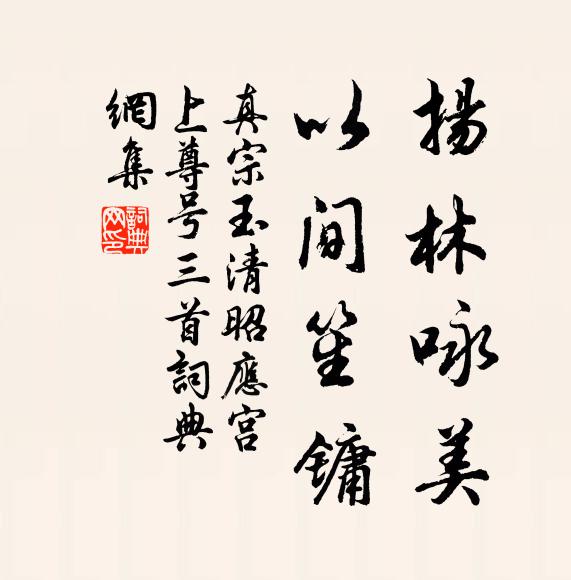 揚林咏美
以間笙鏞
真宗玉清昭應宮
上尊号三首詞典
網集
詞典网印